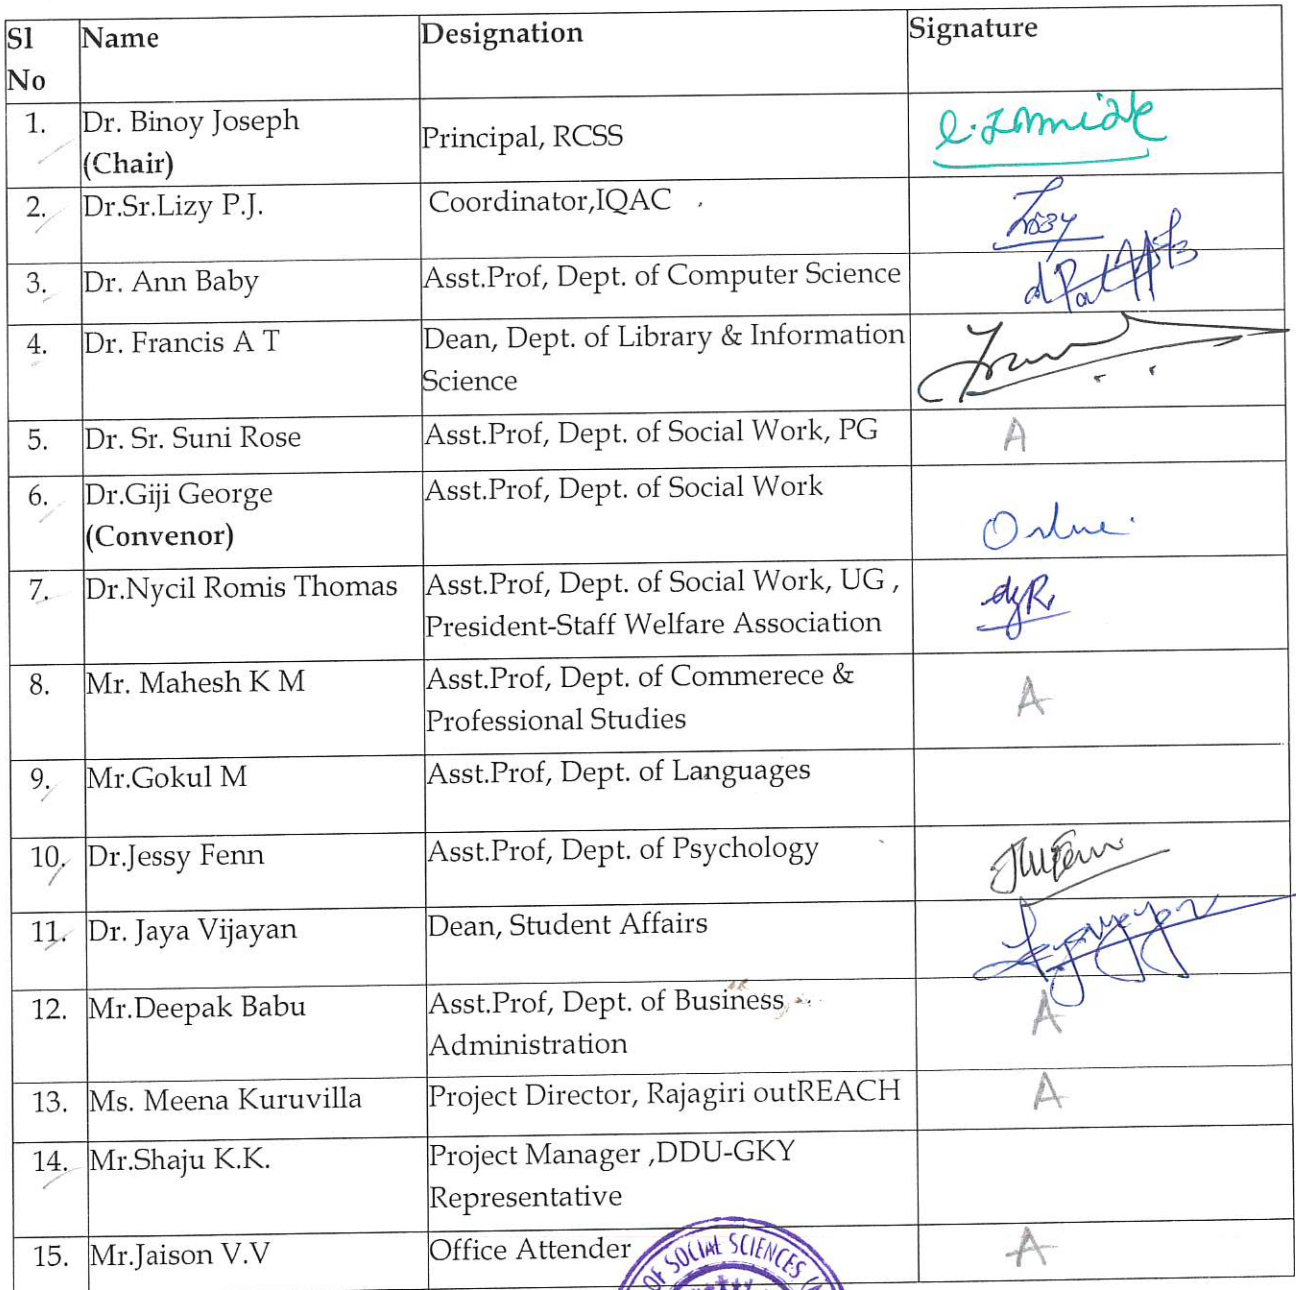 Sl Name Designation Signature
No
1. Dr. Binoy Joseph Principal, RCSS
(Chair)
2. Dr.Sr.Lizy P.J. Coordinator,IQAC Lizzy
3. Dr. Ann Baby Asst.Prof, Dept. of Computer Science
4. Dr. Francis A T Dean, Dept. of Library & Information
Science
5. Dr. Sr. Suni Rose Asst.Prof, Dept. of Social Work, PG A
6. Dr.Giji George Asst.Prof, Dept. of Social Work
(Convenor) Online.
7. Dr.Nycil Romis Thomas Asst.Prof, Dept. of Social Work, UG ,
President-Staff Welfare Association
8. Mr. Mahesh K M Asst.Prof, Dept. of Commerece & A
Professional Studies
9. Mr.Gokul M Asst.Prof, Dept. of Languages
10. Dr.Jessy Fenn Asst.Prof, Dept. of Psychology
11. Dr. Jaya Vijayan Dean, Student Affairs
12. Mr.Deepak Babu Asst.Prof, Dept. of Business A
Administration
13. Ms. Meena Kuruvilla Project Director, Rajagiri outREACH A
14. Mr.Shaju K.K. Project Manager ,DDU-GKY
Representative
15. Mr.Jaison V.V Office Attender A
OF SOCIAL SCIENCES